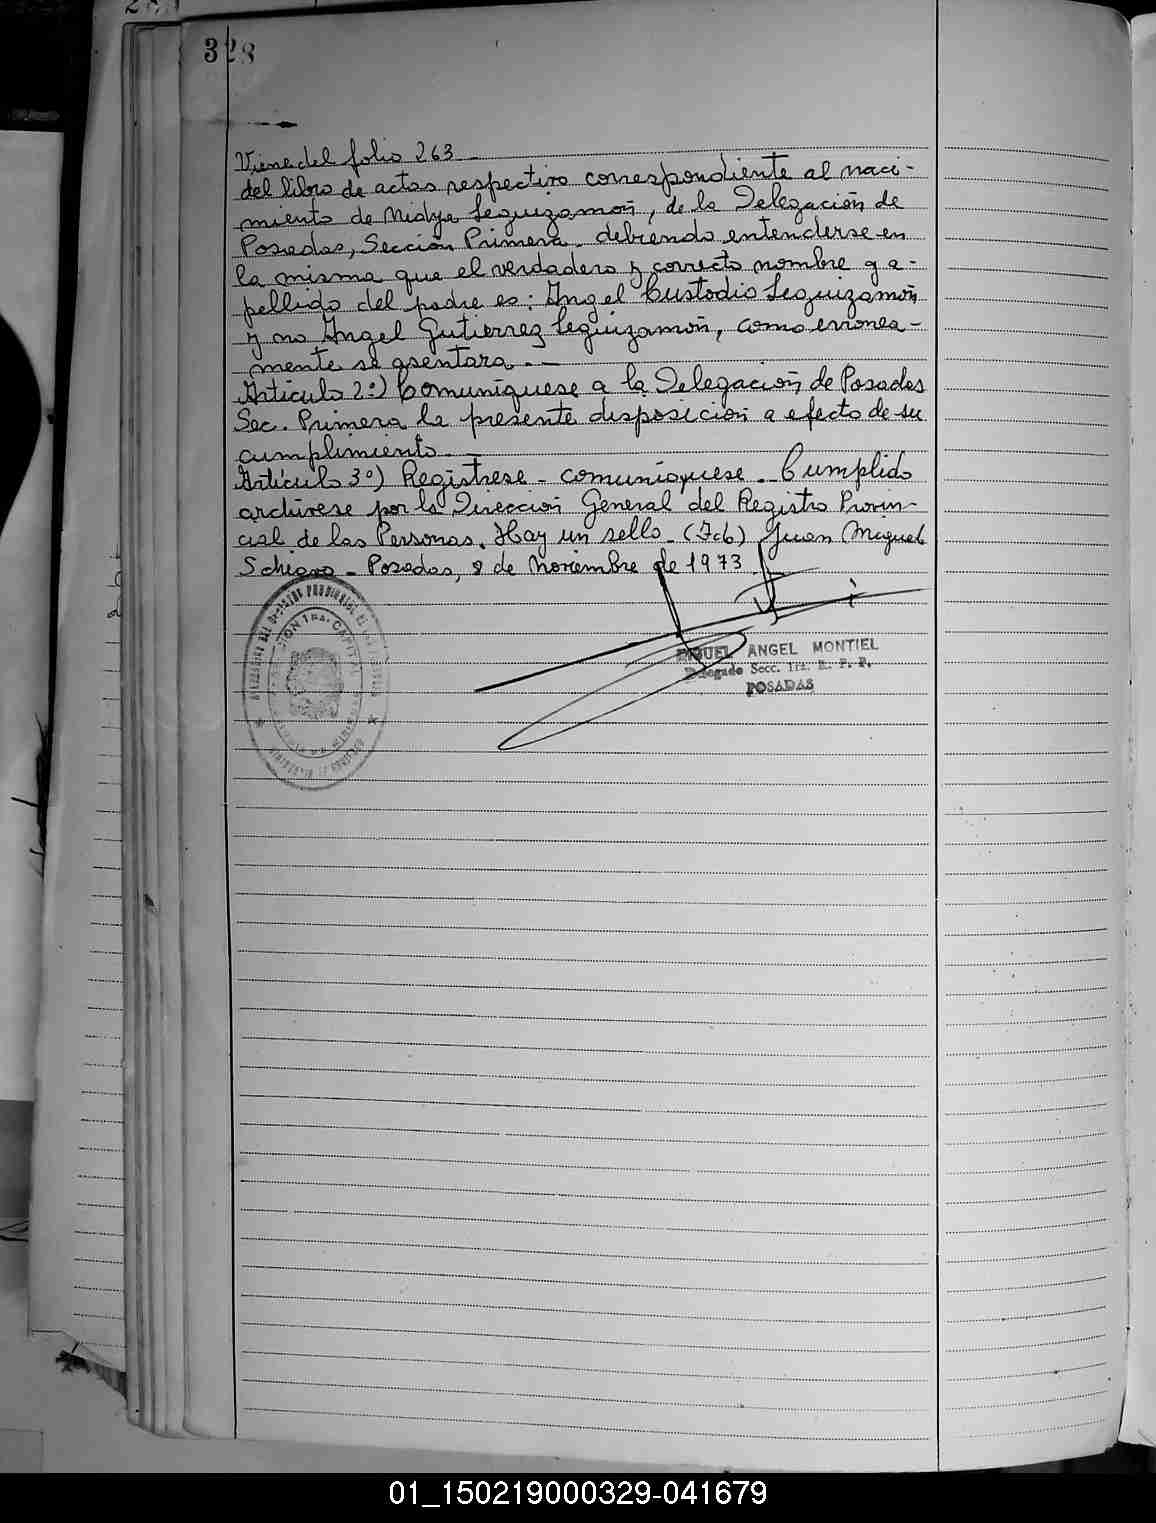 328
Viene del folio 263 -
del libro de actas respectivo correspondiente al naci-
miento de Nidya Leguizamón, de la Delegación de
Posadas, Sección Primera - debiendo entenderse en
la misma que el verdadero y correcto nombre y a-
pellido del padre es: Angel Custodio Leguizamón
y no Angel Gutierrez Leguizamón, como erronea-
mente se asentara. -
Artículo 2º) Comuníquese a la Delegación de Posadas
Sec. Primera la presente disposición a efecto de su
cumplimiento. -
Artículo 3º) Regístrese - comuníquese - Cumplido
archívese por la Dirección General del Registro Provin-
cial de las Personas. Hay un sello - (Fdo) Juan Miguel
Schiavo - Posadas, 8 de Noviembre de 1973
MIGUEL ANGEL MONTIEL
Delegado Secc. 1ra. R. P. P.
POSADAS
01_150219000329-041679